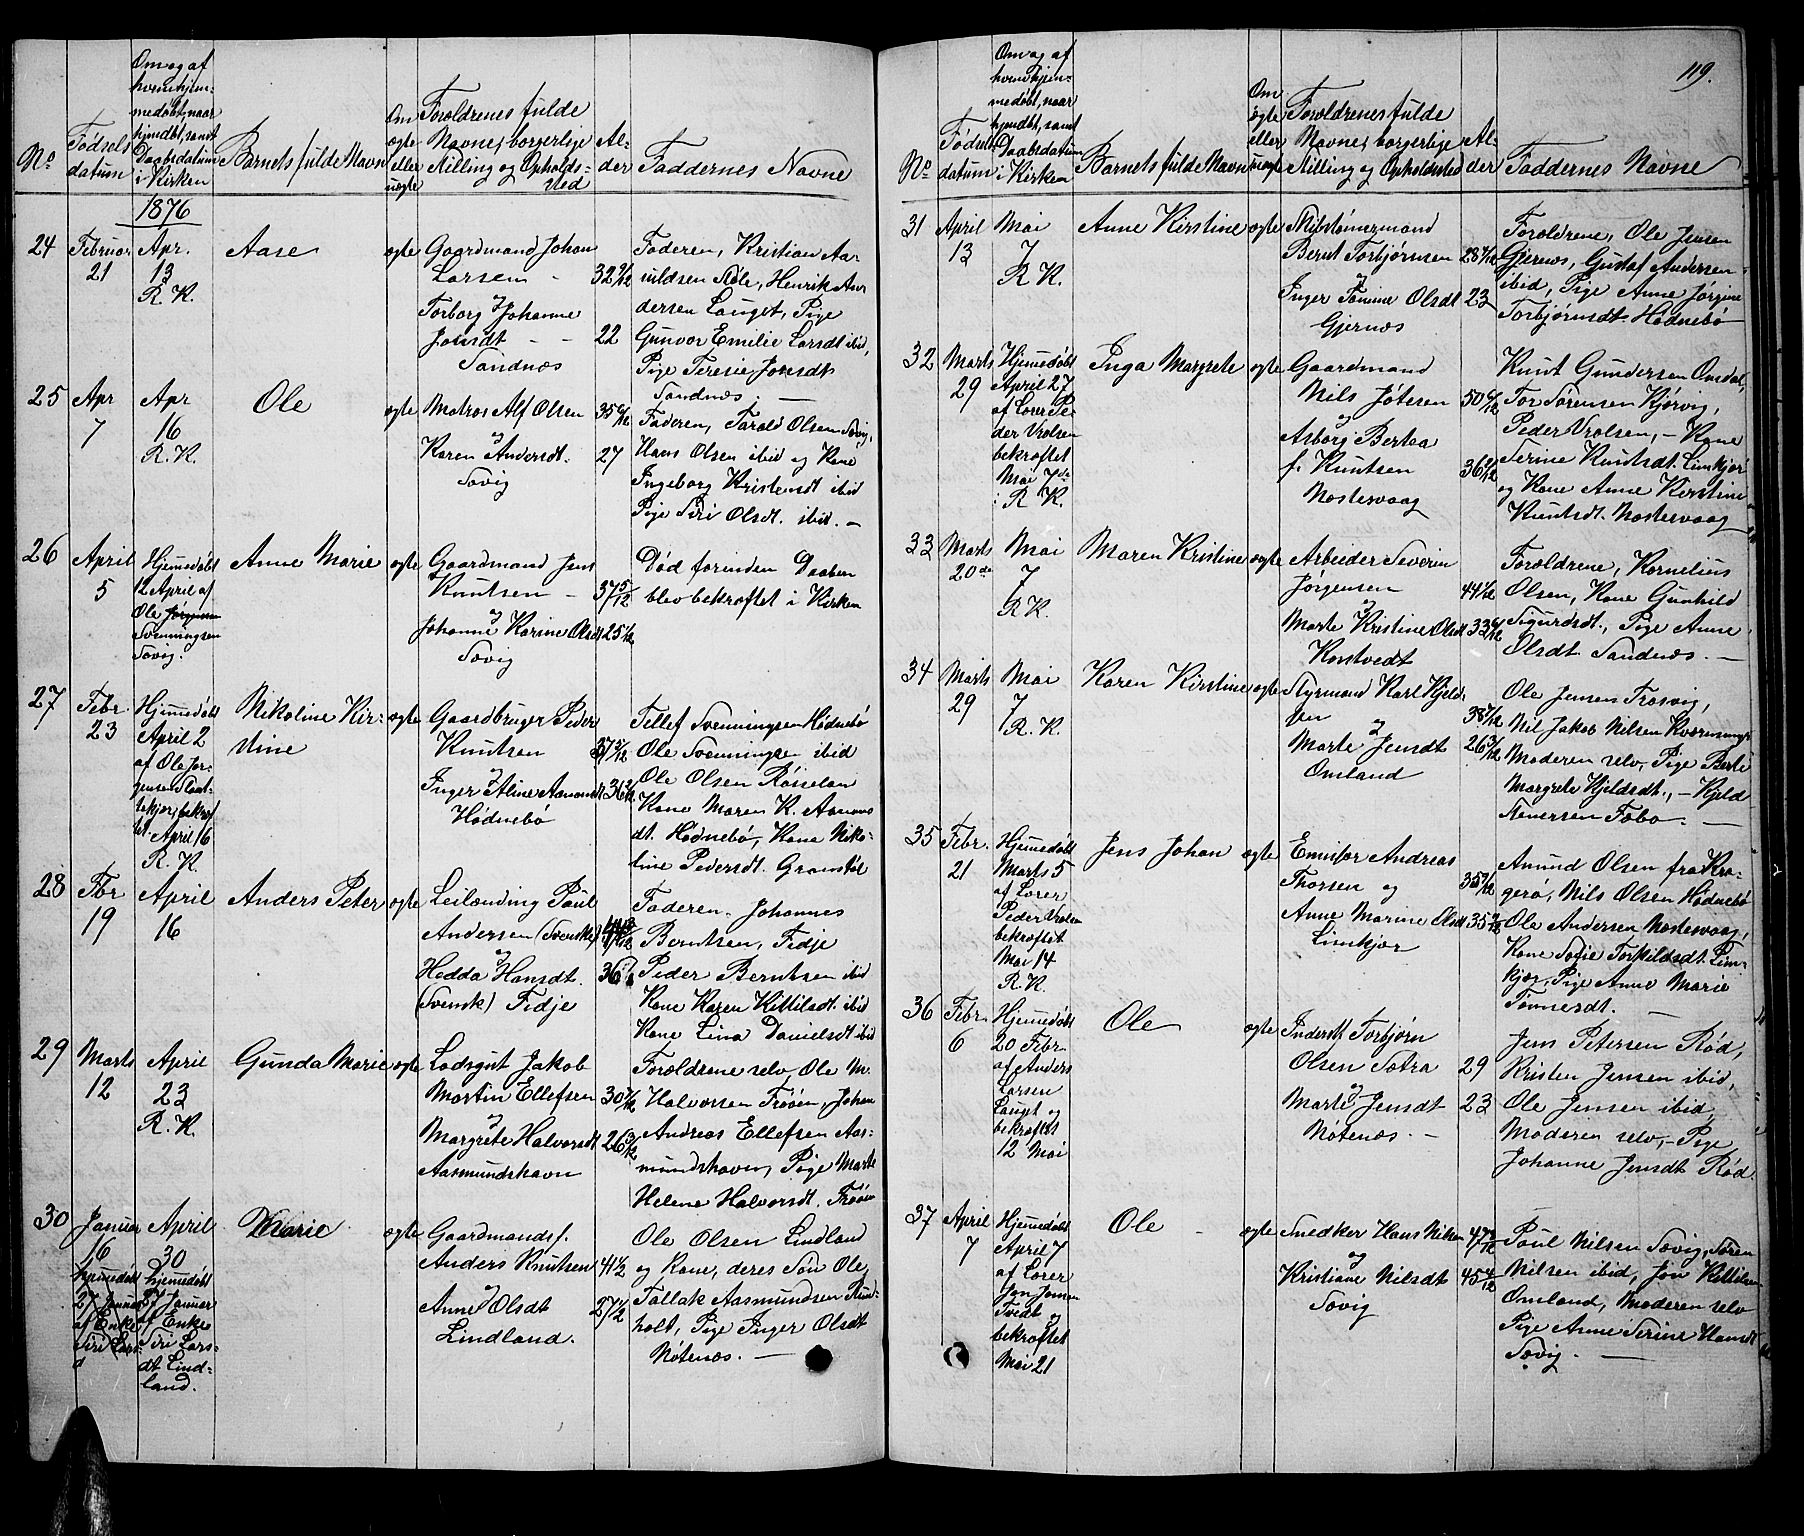 119.
No
Fødsels
datum
Om og af
hvem hjem-
medøbt, naar
hjemdøbt, samt
Daabsdatum
i Kirken
Barnets fulde Navn
Om
ægte
eller
uægte
Forældrenes fulde
Navne, borgerlige
Stilling og Opholds-
sted
Al-
der
Faddernes Navne
1876
24
Februar
21
Apr.
13
R. K.
Aase
ægte
Gaardmand Johan
Larsen -
Torborg Johanne
Jonsdt - -
Sandnæs
22
Faderen, Kristian Aa-
nuldsen Stöle, Henrik An-
dersen Lauget, Pige
Gunvor Emilie Larsdt ibid,
Pige Teresie Jonsdt
Sandnæs. —
25
Apr
7
Apr
16
R. K.
Ole
ægte
Matros Alf Olsen
og
Karen Andersdt.
Savig
27
Faderen, Tarald Olsen Savig,
Hans Olsen ibid og Kone
Ingeborg Kristensdt ibid
Pige Siri Olsdt. ibid. —
26
April
5
Hjemmedøbt
12 April af
Ole Jørgensen
Svenningsen
Savig.
Anne Marie
ægte
Gaardmand Jens
Knutsen -
og
Johanne Karine Olsdt
Savig
37 5/12
Død forinden Daaben
blev bekræftet i Kirken
27
Febr.
23
Hjemmedøbt
April 2
af Ole Jør-
gensen
April 16
R. K.
Nikoline Kir-
stine
ægte
Gaardbruger Peder
Knutsen
og
Inger Aline Aanonsdt
Hødnebø
Tellef Svenningsen Hødnebø
Ole Svenningsen ibid
Ole Olsen Röiselan
Kone Maren K. Aanons
dt. Hødnebø, Kone Niko-
line Pedersdt. Gramstøl
28
Fbr
19
April
16
Anders Peter
ægte
Leilænding Paul
Andersen (Svenske)
og
Hedda Hansdt.
(Svensk) Fidje
Faderen. Johannes
Berntsen, Fidje
Peder Berntsen ibid
Kone Karen Kittilsdt ibid
Kone Lina Danielsdt ibid
29
Marts
12
April
23
R. K.
Gunda Marie
ægte
Lodsgut Jakob
Martin Ellefsen
og
Margrete Halvorsdt
Aasmundshavn
Forældrene selv, Ole M.
Halvorsen Trøen, Johan
Andreas Ellefsen Aas-
mundshavn, Pige Marte
Helene Halvorsdt. Trøen
30
Januar
16
hjemmedøbt
27 Januar
af Enke
Siri Lars-
d
April
30
hjemmedøbt
27 Januar
af Enke
Siri Lars-
dt Lind-
land.
Marie
ægte
Gaardmandsf.
Anders Knutsen
og
Anne Olsdt
Lindland.
41 1/2
27 1/2
Ole Olsen Lindland
og Kone, deres Søn Ole,
Tallak Aasmundsen Rin-
holt, Pige Inger Olsdt
Nötenæs. —
No
Fødsels
datum
Om og af
hvem hjem-
medøbt, naar
hjemdøbt, samt
Daabsdatum
i Kirken
Barnets fulde Navn
Om
ægte
eller
uægte
Forældrenes fulde
Navne, borgerlige
Stilling og Opholdssted
Al-
der
Faddernes Navne
31
April
13
Mai
7
R K.
Anne Kirstine
ægte
Skibstømmermand
Bernt Torbjørnsen
og
Inger Tomine Olsdt
Gjernæs
23
Forældrene, Ole Jensen
Gjernæs, Gustaf Andersen
ibid, Pige Anne Jørgine
Torbjørnsdt. Hødnebø
32
Marts
29
Hjemmedøbt
April 27
af Lærer Pe-
der Vrolsen
bekræftet
Mai 7de
i R K.
Inga Margrete
ægte
Gaardmand
Nils Jötesen
og
Asborg Bertea
f. Knutsen
Nostesvaag
Knut Gundersen Omdal,
Tor Sørensen Kjørvig,
Peder Vrolsen, — Kone
Serine Knutsdt. Limkjør
og Kone Anne Kirstine
Knutsdt. Nostesvaag
33
Marts
20de
Mai
7
R K.
Maren Kristine
ægte
Arbeider Severin
Jørgensen
og
Marte Kristine Olsdt
Konstvedt
Forældrene, Kornelius
Olsen, Kone Gunhild
Sigurdsdt., Pige Anne
Olsdt Sandnæs. —
34
Marts
29
Mai
7
R. K.
Karen Kirstine
ægte
Styrmand Karl Kjeld-
sen
og
Marte Jensdt
Omland
Ole Jensen Trosvig,
Nil Jakob Nilsen
Moderen selv, Pige Berte
Margrete Kjeldsdt., — Kjeld
Stenersen Fobo. —
35
Febr.
21
Hjemmedøbt
Marts 5
af Lærer
Peder Vrolsen
bekræftet
Mai 14
R. K.
Jens Johan
ægte
Andreas
Thorsen og
Anne Marine Olsdt
Limkjør
Amund Olsen fra Kra-
gerø, Nils Olsen Hødnebø
Ole Andersen Nostesvaag,
Kone Sofie Torkildsdt. Lim-
kjør, Pige Anne Marie
Tønnesdt. —
36
Febr.
6
Hjemmedøbt
20 Febr.
af Anders
Larsen
Lauget og
bekræftet
12 Mai
Ole
ægte
Inderst Torbjørn
Olsen Sotra
og
Marte Jensdt
Nötenæs. -
29
23
Jens Petersen Rød,
Kristen Jensen ibid,
Ole Jensen ibid,
Moderen selv, — Pige
Johanne Jensdt Rød.
37
April
7
Hjemmedøbt
April 7
af Lærer
Jon Jonsen
Tvedt og
bekræftet
Mai 21
Ole
ægte
Snedker Hans Nilsen
og
Kristiane Nilsdt
Savig
45 4/12
Paul Nilsen Savig, Søren
Nilsen ibid, Jon Kittilsen
Omland, Moderen selv
Pige Anne Serine Hansdt
Savig. —